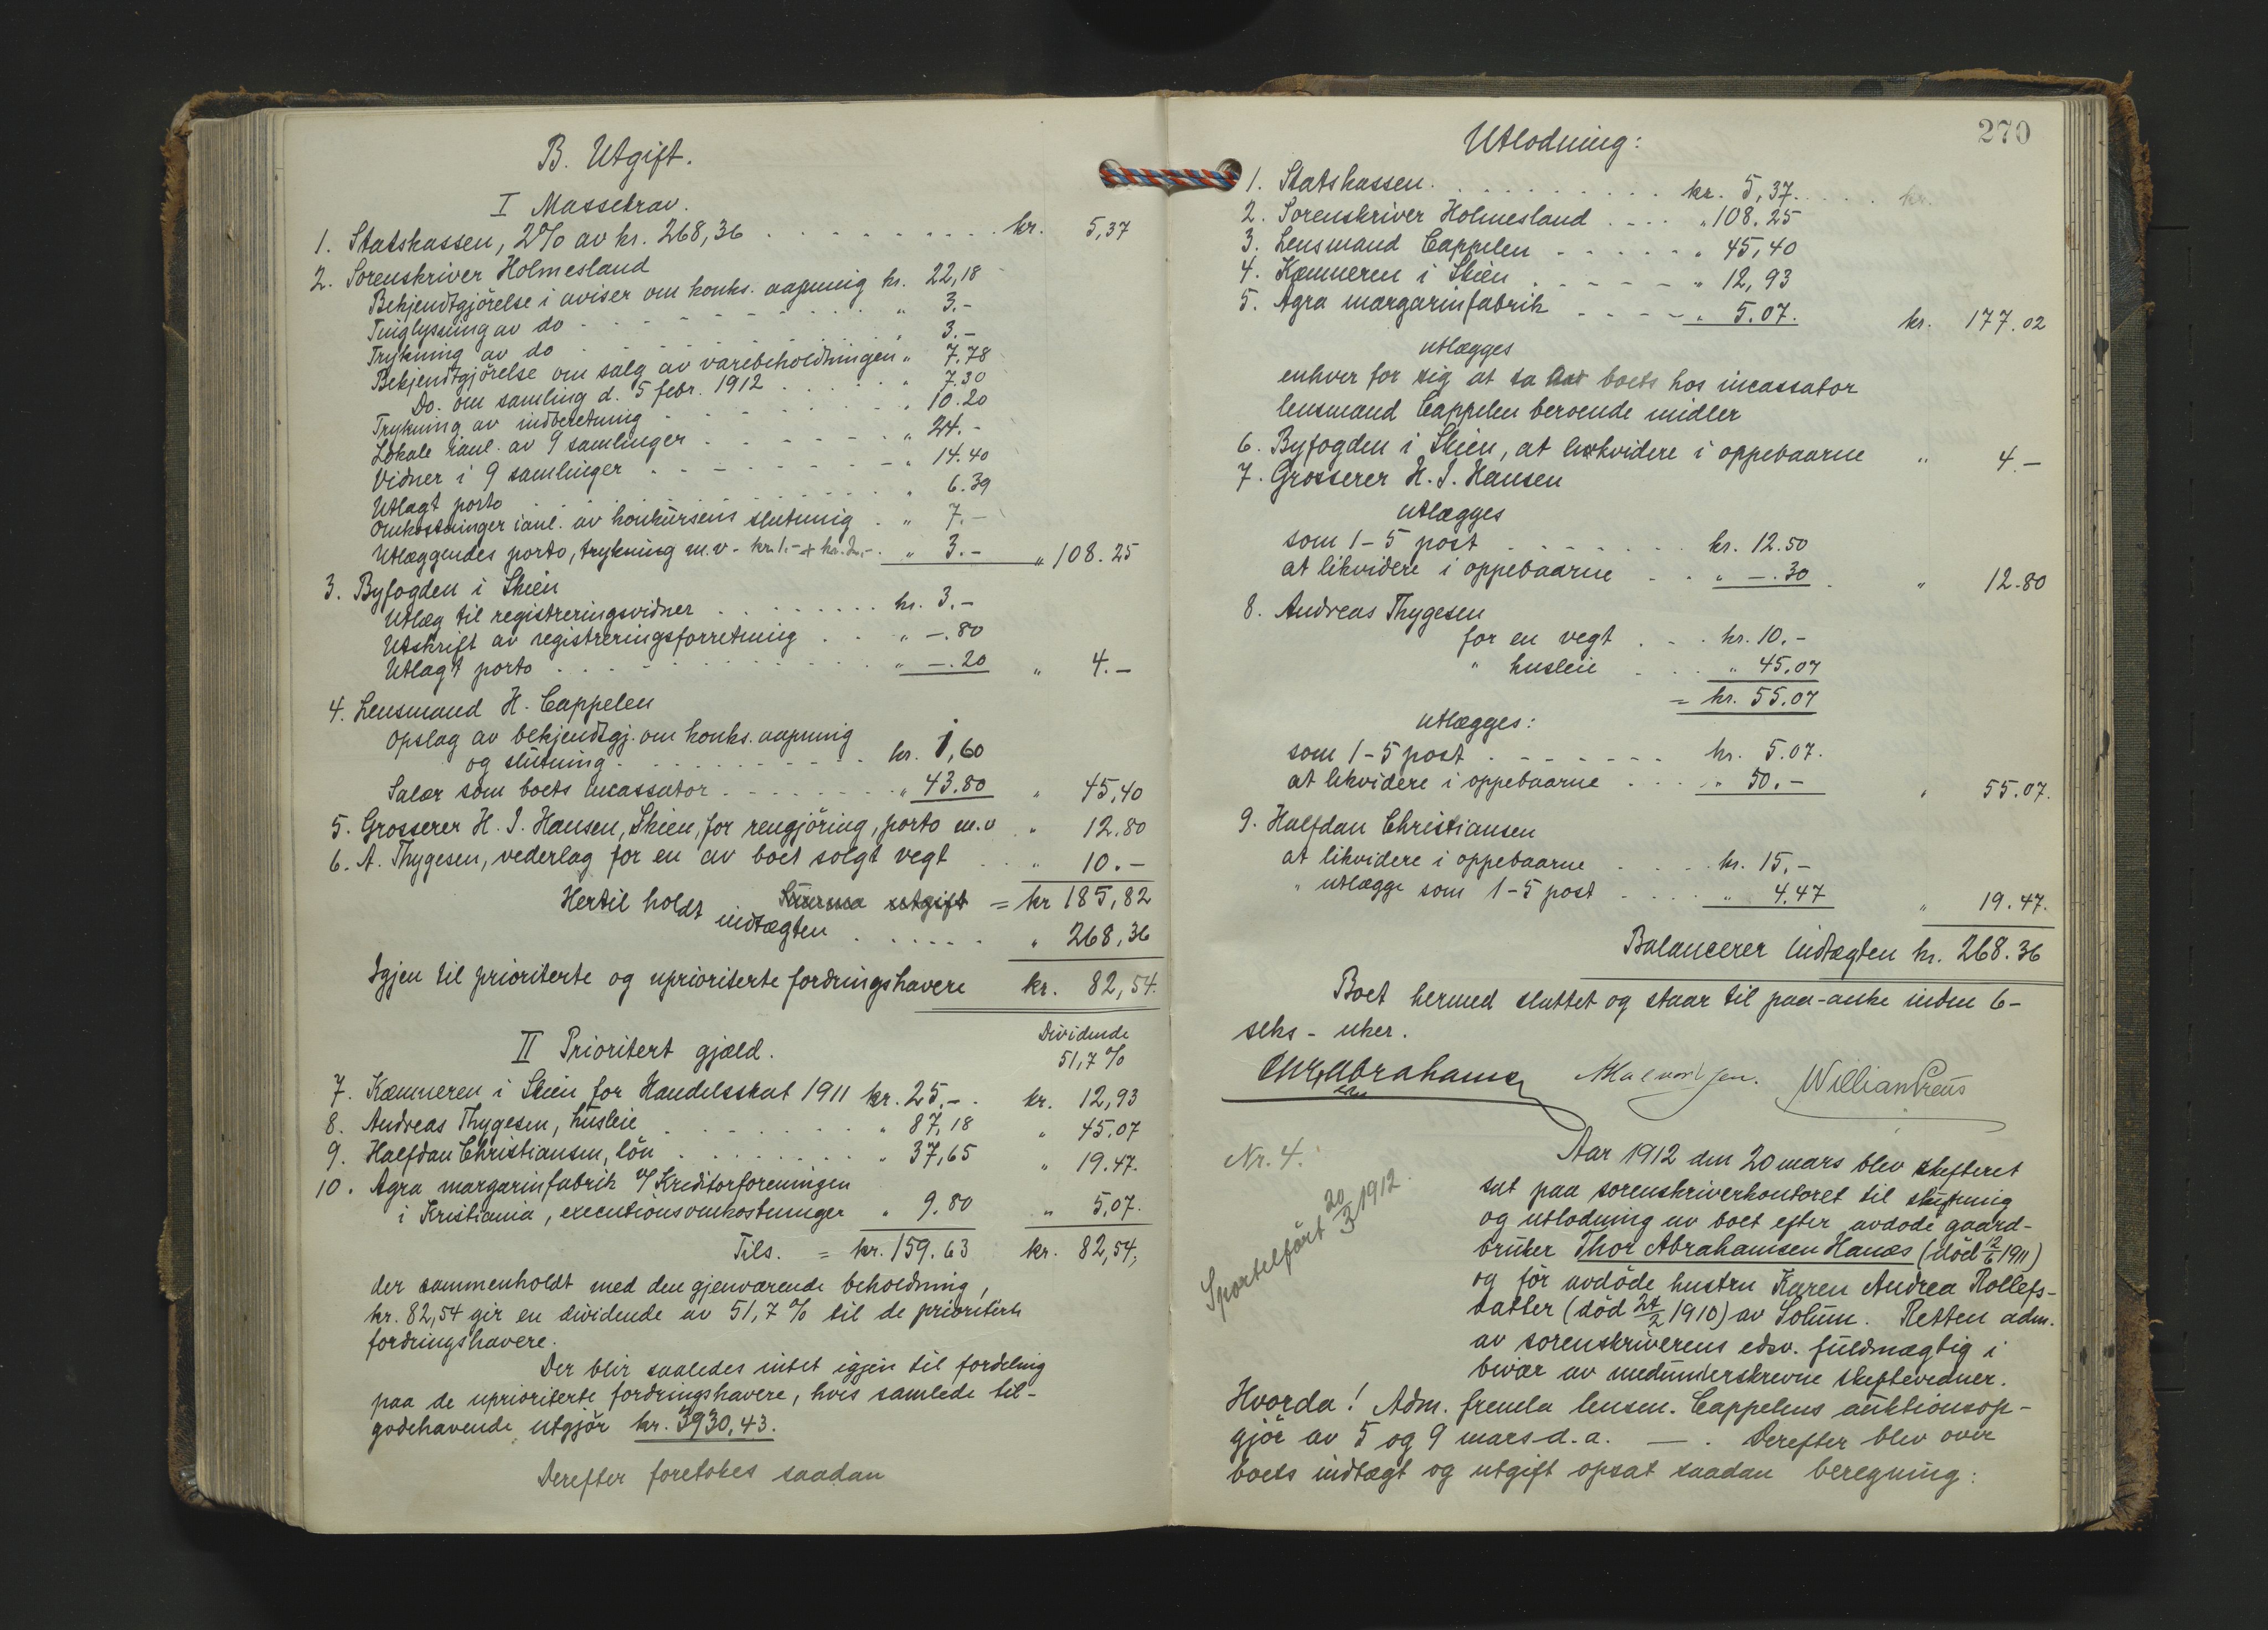 B. Utgift.
I Massekrav.
1. Statskassen, 2% av kr. 268,36 . . . . . . . . . kr. 5,37
2. Sorenskriver Holmesland
Bekjendtgjörelse i aviser om konks. aapning kr. 22,18
Tinglysning av do . . . . . . . . . " 3.-
Trykning av do . . . . . . . . . " 3.-
Bekjendtgjörelse om salg av varebeholdningen " 7.78
Do. om samling d. 5 febr. 1912 . . . . . " 7.30
Trykning av indberetning . . . . . . . " 10.20
Lokale ianl. av 9 samlinger . . . . . . " 24.-
Vidner i 9 samlinger . . . . . . . . " 14.40
Utlagt porto . . . . . . . . . . " 6.39
Omkostninger ianl. av konkursens slutning . " 7.-
Utlæggendes porto, trykning m.v. kr. 1.- + kr. 2.- . " 3.- " 108.25
3. Byfogden i Skien
Utlæg til registreringsvidner . . . . . . . . kr. 3.-
Utskrift av registreringsforretning . . " -.80
Utlagt porto . . . . . . . . . . . " -.20 " 4.-
4. Lensmand H. Cappelen
Opslag av bekjendtgj. om konks. aapning
og slutning . . . . . . . . . . kr. 1,60
Salær som boets incassator . . . . . . . " 43.80 " 45,40
5. Grosserer H. J. Hansen, Skien, for rengjöring, porto m.v . " 12.80
6. A. Thygesen, vederlag for en av boet solgt vegt . . " 10.-
Summa utgift = kr 185,82
Hertil holdt indtægten . . . . . . " 268,36
Igjen til prioriterte og uprioriterte fordringshavere kr. 82,54.
II Prioritert gjæld.
Dividende
51,7 %
7. Kæmneren i Skien for Handelsskat 1911 kr. 25.- . kr. 12,93
8. Andreas Thygesen, husleie . . . . . . . " 87,18 " 45.07
9. Halfdan Christiansen, lön . . . . . . . . " 37,65 " 19.47.
10. Agra margarinfabrik v/ Kreditorforeningen
i Kristiania, executionsomkostninger " 9.80 " 5,07.
Tils. = kr. 159.63 kr. 82,54,
der sammenholdt med den gjenværende beholdning,
kr. 82,54 gir en dividende av 51,7 % til de prioriterte
fordringshavere.
Der blir saaledes intet igjen til fordeling
paa de uprioriterte fordringshavere, hvis samlede til-
godehavende utgjör kr. 3930,43.
Derefter foretokes saadan
270
Utlodning:
1. Statskassen . . . . . . . . . . kr. 5,37 . . . . . kr.
2. Sorenskriver Holmesland . . . . " 108.25
3. Lensmand Cappelen . . . . . . " 45,40
4. Kæmneren i Skien . . . . . . " 12,93
5. Agra margarinfabrik . . . . " 5.07. kr. 177.02
utlægges
enhver for sig at ta boets hos incassator
lensmand Cappelen beroende midler
6. Byfogden i Skien, at likvidere i oppebaarne " 4.-
7. Grosserer H. J. Hansen
utlægges
som 1-5 post . . . . . . . . kr. 12.50
at likvidere i oppebaarne . . " -.30 . " 12.80
8. Andreas Thygesen
for en vegt . . . kr. 10.-
" husleie . . . " 45.07
= kr. 55.07
utlægges:
som 1-5 post . . . . . . . kr. 5.07.
at likvidere i oppebaarne . . . " 50.- " 55.07.
9. Halfdan Christiansen
at likvidere i oppebaarne . . . . kr. 15.-
" utlægge som 1-5 post . . . . " 4.47 " 19.47.
Balancerer indtægten kr. 268.36
Boet hermed sluttet og staar til paa-anke inden 6-
seks - uker.
Chr. Abrahamsen William Preus
Nr. 4.
Sportelfört 20/3 1912.
Aar 1912 den 20 mars blev skifteret
sat paa sorenskriverkontoret til slutning
og utlodning av boet efter avdöde gaard-
bruker Thor Abrahamsen Hanæs (död 12/6 1911)
og för avdöde hustru Karen Andrea Rollefs-
datter (död 24/2 1910) av Solum. Retten adm.
av sorenskriverens edsv. fuldmægtig i
bivær av medunderskrevne skiftevidner.
Hvorda! Adm. fremla lensm. Cappelens auktionsop-
gjör av 5 og 9 mars d.a. — . Derefter blev over
boets indtægt og utgift opsat saadan beregning: